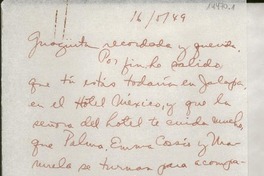 16/5/49
recordada y querida.
Por fin he sabido
que tú estás todavía en Jalapa,
en el Hotel México, y que la
señora del hotel te cuida mucho,
que Palma, Emma Cosío y Ma-
nuela se turnan para acompa-